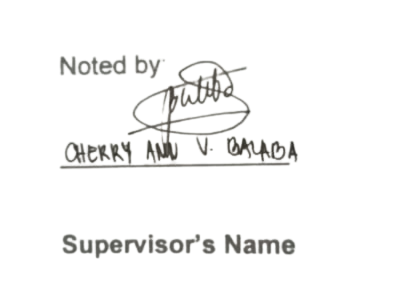 Noted by:
CHERRY ANN V. BALABA
Supervisor's Name